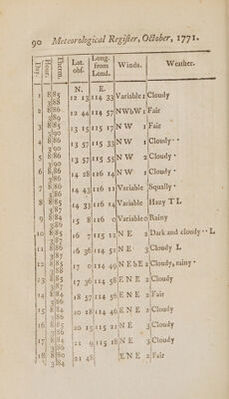 90 Meteorological Regiſter, October, 1771.
Day. Hour. Therm. Lat. obſ. Long. from Lond. Winds. Weather.
N. E.
1 8 85 12 13 114 33 Variable 1 Cloudy
3 88
2 8 86 12 44 114 57 NWbW 1 Fair
3 89
3 8 85 13 15 115 17 N W 1 Fair
3 90
4 8 86 13 57 115 33 N W 2 Cloudy
3 90
5 8 86 13 57 115 55 N W 2 Cloudy
3 90
6 8 86 14 28 116 14 N W 1 Cloudy
3 89
7 8 86 14 43 116 Variable Squally
8 8 86 14 33 116 14 Variable Hazy T L
9 8 84 15 8 116 0 Variable 0 Rainy
3 86
10 8 85 16 7 115 N E 2 Dark and cloudy L
3 87
11 8 86 16 36 114 51 N E 3 Cloudy L
3 87
12 8 85 17 0 114 49 N E b E 2 Cloudy, rainy
3 88
13 8 85 17 36 114 58 E N E 2 Cloudy
14 8 84 18 57 114 56 E N E 2 Fair
3 86
15 8 84 20 18 114 46 E N E 2 Cloudy
3 86
16 8 85 20 15 115 21 N E 3 Cloudy
3 86
17 8 84 21 9 115 18 N E 3 Cloudy
3 86
18 8 80 21 48 E N E 2 Fair
3 84